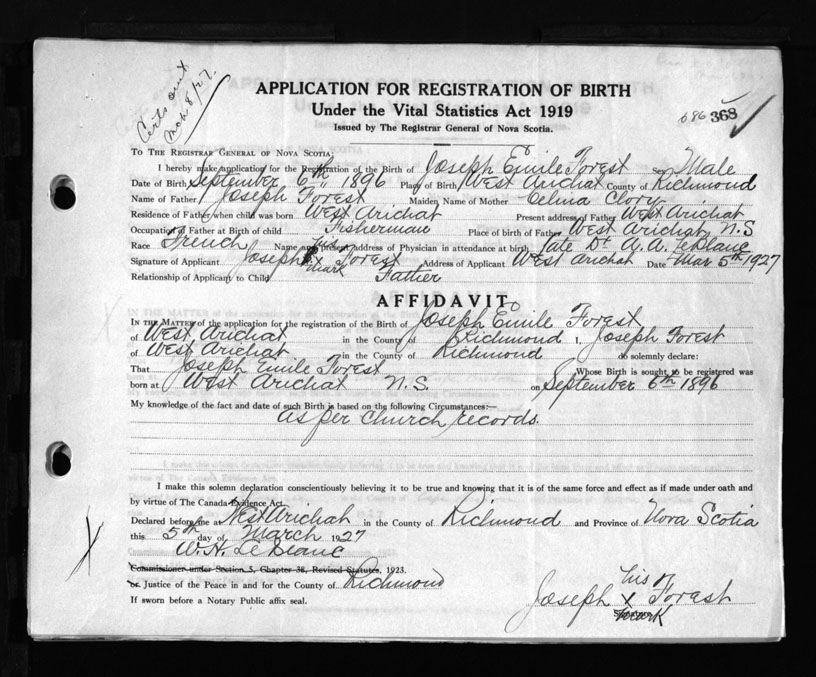 Certs out
Mch 8/27.
APPLICATION FOR REGISTRATION OF BIRTH
Under the Vital Statistics Act 1919
Issued by The Registrar General of Nova Scotia.
686 368
To The Registrar General of Nova Scotia:
I hereby make application for the Registration of the Birth of Joseph Emile Forest Sex Male
Date of Birth September 6th 1896 Place of Birth West Arichat County of Richmond
Name of Father Joseph Forest Maiden Name of Mother Celina Clory
Residence of Father when child was born West Arichat Present address of Father West Arichat
Occupation of Father at Birth of child Fisherman Place of birth of Father West Arichat N.S
Race French Name and present address of Physician in attendance at birth late Dr A. A. LeBlanc
Signature of Applicant Joseph his x mark Forest Address of Applicant West Arichat Date Mar 5th 1927
Relationship of Applicant to Child Father
AFFIDAVIT
In the Matter of the application for the registration of the Birth of Joseph Emile Forest
of West Arichat in the County of Richmond I, Joseph Forest
of West Arichat in the County of Richmond do solemnly declare:
That Joseph Emile Forest Whose Birth is sought to be registered was
born at West Arichat N.S. on September 6th 1896
My knowledge of the fact and date of such Birth is based on the following Circumstances:—
as per church records.
I make this solemn declaration conscientiously believing it to be true and knowing that it is of the same force and effect as if made under oath and
by virtue of The Canada Evidence Act.
Declared before me at West Arichat in the County of Richmond and Province of Nova Scotia
this 5th day of March 1927
W. H. LeBlanc
Commissioner under Section 5, Chapter 38, Revised Statutes, 1923.
or Justice of the Peace in and for the County of Richmond
If sworn before a Notary Public affix seal.
his
Joseph x Forest
mark
Signature